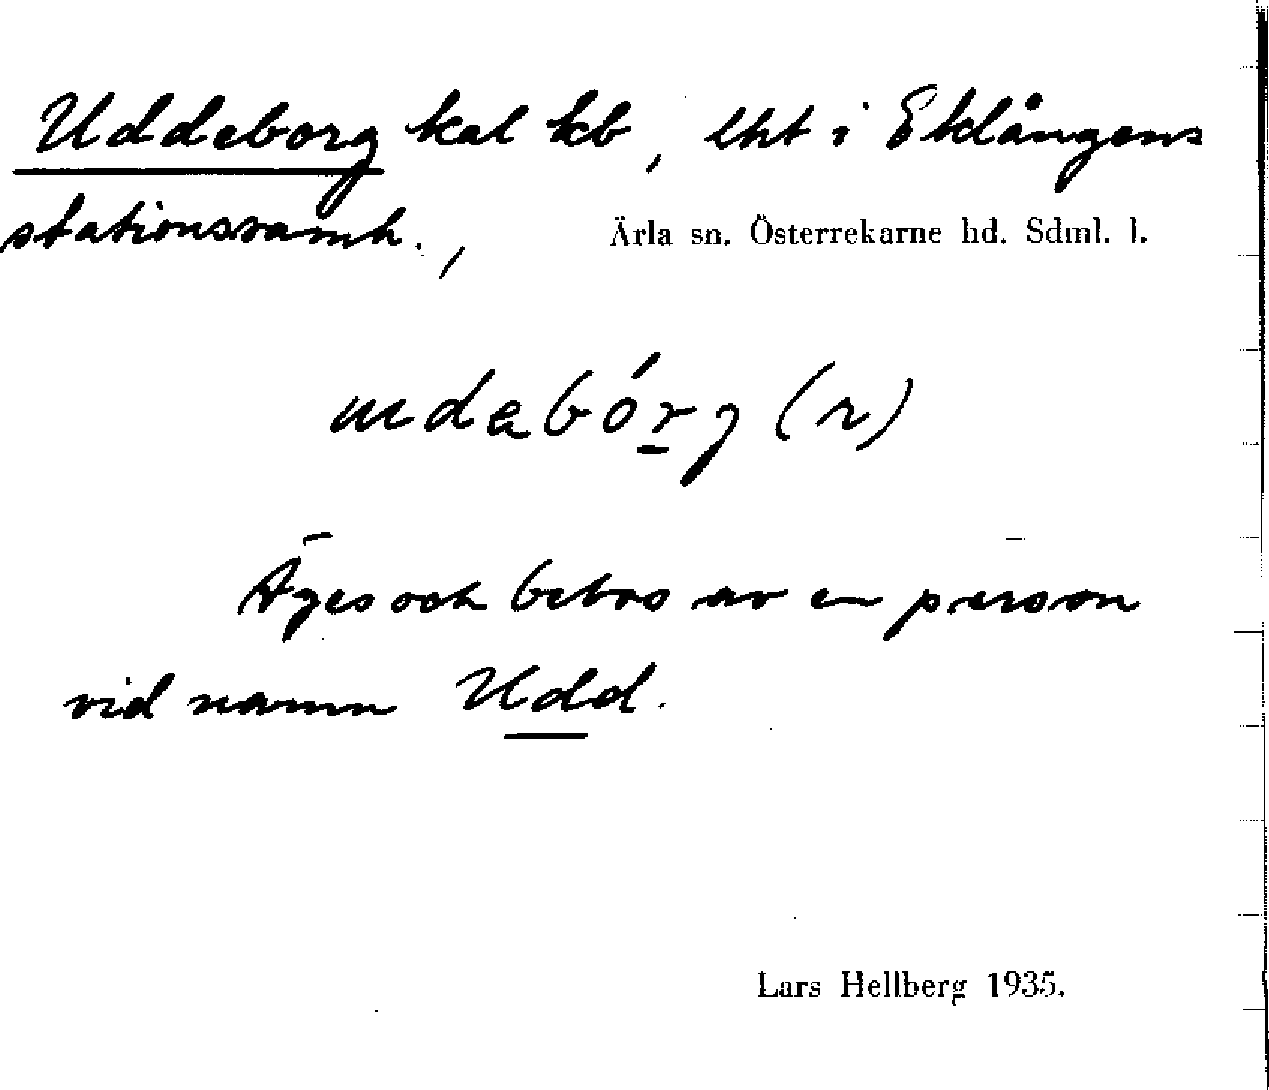 Uddeborg kal kb, lht i Eklångens
stationssamh., Ärla sn. Österrekarne hd. Sdml. l.
Äges och bebos av en person
vid namn Udd.
Lars Hellberg 1935.